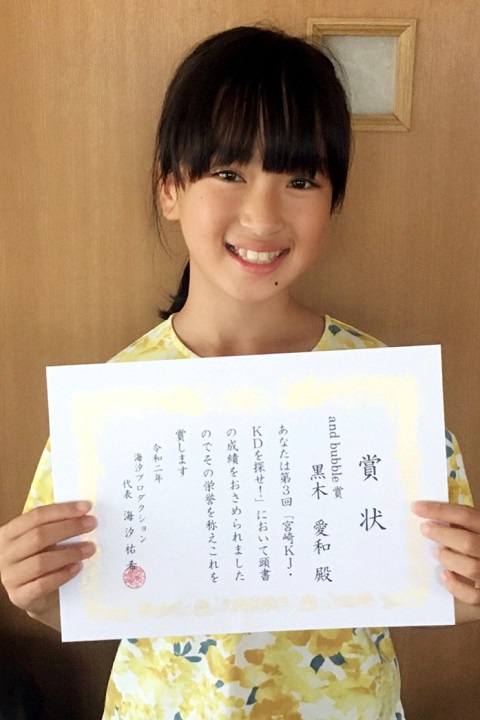 賞状
and bubble賞
黒木 愛和 殿
あなたは第3回「宮崎KJ・
KDを探せ!」において頭書
の成績をおさめられました
のでその栄誉を称えこれを
賞します
令和二年
海汐プロダクション
代表 海汐祐希